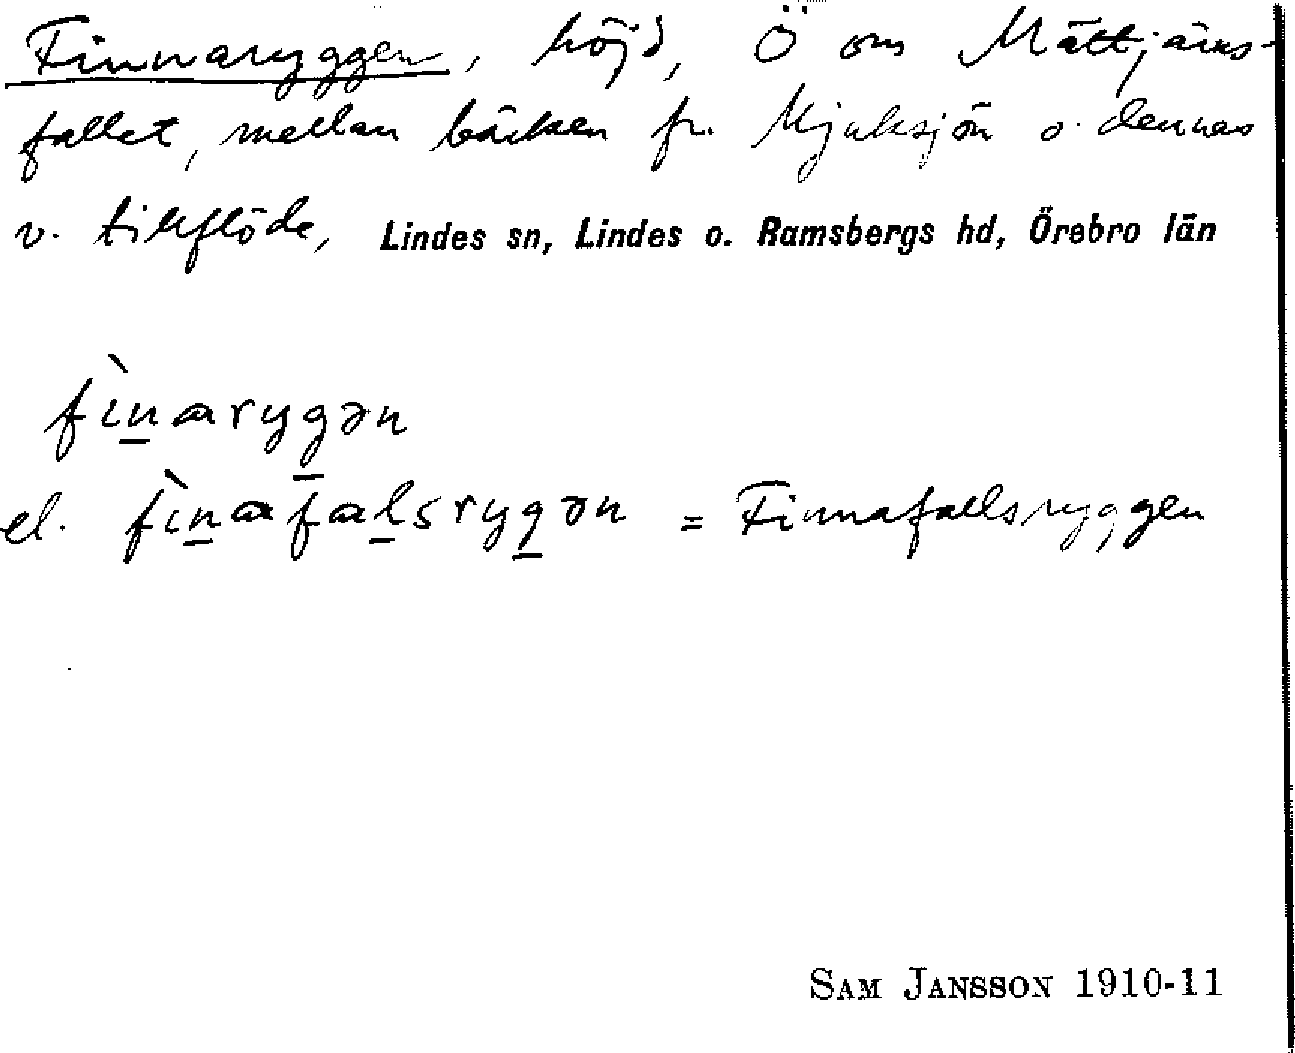 Finnaryggen, höjd, Ö om Mättjärns-
fallet, mellan bäcken fr. Mjuksjön o. dennas
v. tillflöde, Lindes sn, Lindes o. Ramsbergs hd, Örebro län
fìn̲aryg̲ən
el. fìn̲afal̲sryg̲ən = Finnafallsryggen
SAM JANSSON 1910-11